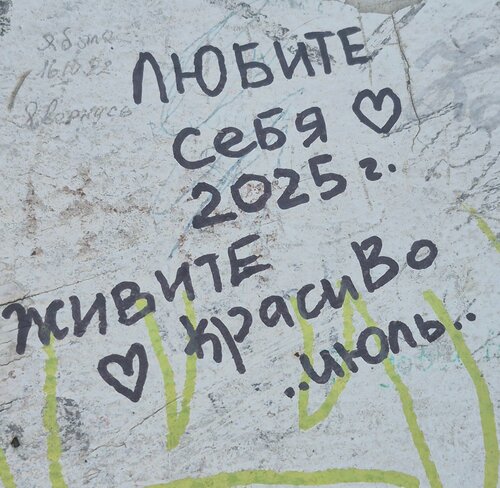 Я была
16.10.22
Я вернусь
ЛЮБИТЕ
себя
2025 г.
ЖИВИТЕ
красиво
..июль..